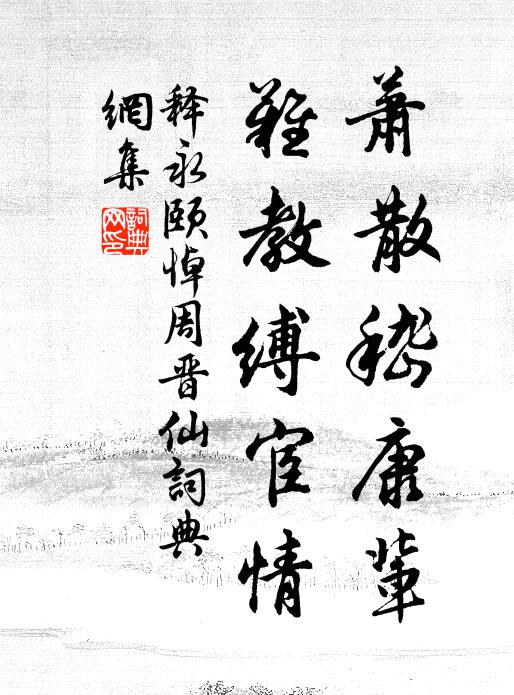 蕭散嵇康輩
難教縛宦情
释永颐悼周晋仙詞典
網集
詞典网印